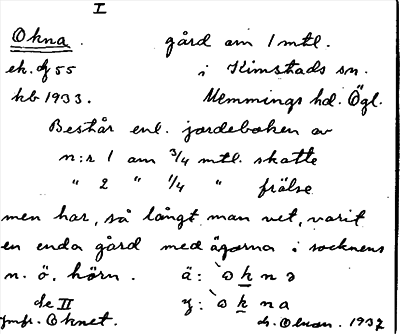 I
Okna. gård om 1 mtl.
ek. bl 55 i Kimstads sn.
kb 1933. Memmings hd. Ögl.
Består enl. jordeboken av
n:r 1 om 3/4 mtl. skatte
" 2 " 1/4 " frälse
men har, så långt man vet, varit
en enda gård med ägorna i socknens
n. ö. hörn. ä: `ɷ k n ə
de II y: `ɷ k n a
Jmfr. Oknet. 1932